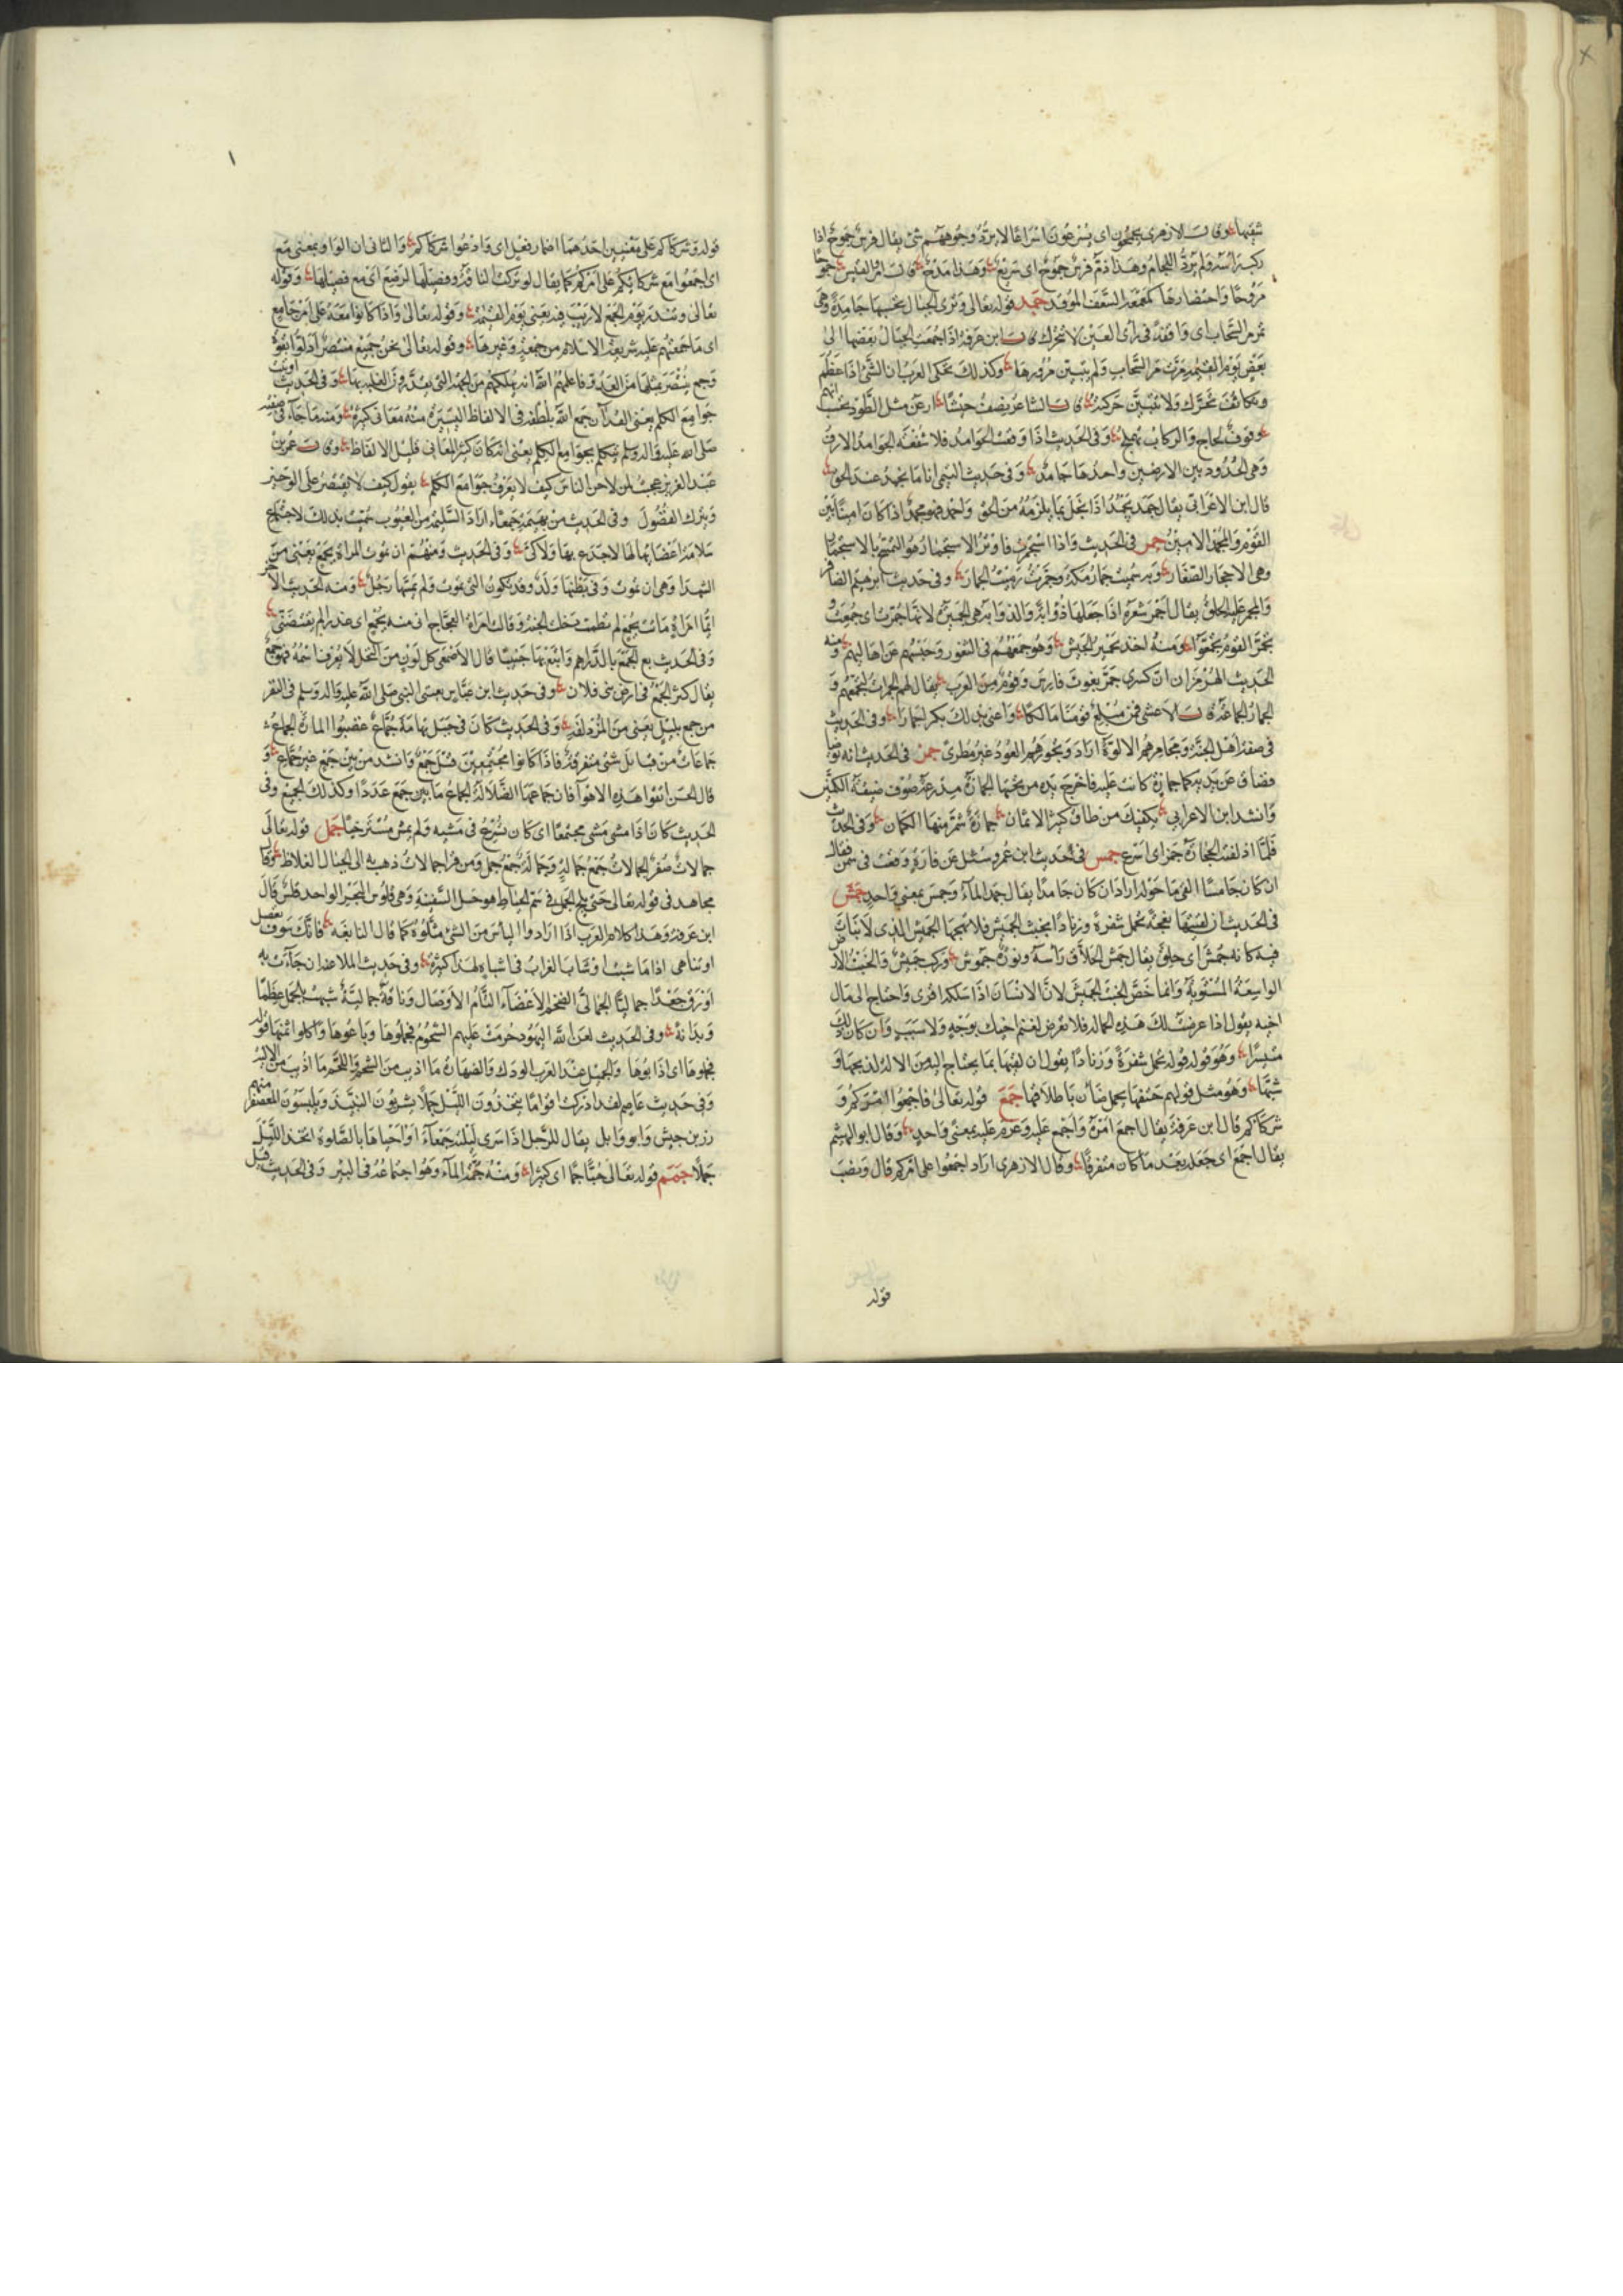 شبها وقال الازهرى يجمحون اى يسرعون اسراعا لا يرد وجوههم شئ يقال فرس جموح اذا
ركب راسه ولم يرده اللجام وهذا ذم فرس جموح اى سريع وهذا مدح قال امرؤ القيس جموحا
مروحا واحضارها كمعمعة السعف الموقد جمد قوله تعالى وترى الجبال تحسبها جامدة وهى
تمر مر السحاب اى واقفة فى راى العين لا تتحرك قال ابن عرفة اذا جمعت الجبال بعضها الى
بعض يوم القيمة مرت مر السحاب ولم يتبين مرورها وكذلك تحكى العرب ان الشئ اذا عظم
وتكاثف تحرك ولا تتبين حركته قال الشاعر يصف جيشا ارعن مثل الطود تحسب انهم
وقوف لحاج والركاب تهملج وفى الحديث اذا وقعت الجوامد فلا شفعة الجوامد الارف
وهى الحدود بين الارضين واحدها جامد وفى حديث التيمى انا ما نجمد عند الحق
قال ابن الاعرابى يقال جمد يجمد اذا بخل بما يلزمه من الحق واجمد فهو مجمد اذا كان امينا بين
القوم والمجمد الامين جمر فى الحديث واذا استجمرت فاوتر الاستجمار هو التمسح بالاستجمار
وهى الاحجار الصغار وبه سميت جمار مكة وجمرت رميت الجمار وفى حديث ابرهيم الضافر
والمجمر عليه الحلق يقال اجمر شعره اذا جعلها ذؤابة والذوابة هى الجميرة لانها جمرت اى جمعت و
تجمر القوم تجمعوا ومنه اخذ تجمير الجيش وهو جمعهم فى الثغور وحبسهم عن اهاليهم ومنه
الحديث الهرمزان ان كسرى جمر بعوث فارس وقوم من العرب يقال لهم الجمرات لتجمعهم و
الجمار الجماعة قال الاعشى فمن مبلغ قومنا مالكا واعنى بذلك بكرا جمارا وفى الحديث
فى صفة اهل الجنة ومجامرهم الالوة اراد وبخورهم العود غير مطرى جمز فى الحديث انه توضا
فضاق عن يديه كما جمازة كانت عليه فاخرج يده من تحتها الجمازة مدرعة صوف ضيقة الكمين
وانشد ابن الاعرابى يكفيك من طاق كثير الاثمان جمازة شمر منها الكمان وفى الحديث
فلما اذلقته الحجارة جمز اى اسرع جمس فى حديث ابن عمر وسئل عن فارة وقعت فى سمن فقال
ان كان جامسا القى ما حوله اراد ان كان جامدا يقال جمد الماء وجمس بمعنى واحد جمش
فى الحديث ان لقيتها نعجة تحمل شفرة وزنادا بخبت الجميش فلا تهجها الجميش الذى لا نبات
فيه كانه جمش اى حلق يقال جمش الحلاق راسه ونورة جموش وركب جميش والخبت الارض
الواسعة المستوية وانما خص الخبت الجميش لان الانسان اذا سلكه اقوى واحتاج الى مال
اخيه يقول اذا عرضت لك هذه الحالة فلا تعرض لغنم اخيك بوجه ولا سبب وان كان ذلك
متيسرا وهو قوله قوله تحمل شفرة وزنادا يقول ان لقيتها بما يحتاج اليه من الالة لذبحها و
شيها وهو مثل قولهم حتفها تحمل ضان باظلافها جمع قوله تعالى فاجمعوا امركم و
شركاكم قال ابن عرفة يقال اجمع امره واجمع عليه وعزم عليه بمعنى واحد وقال ابو الهيثم
يقال اجمع اى جعله بعد ما كان متفرقا وقال الازهرى اراد اجمعوا على امركم قال ونصب
قوله
قوله وشركاكم على معنيين احدهما اضمار فعل اى وادعوا شركاكم والثانى ان الواو بمعنى مع
اى اجمعوا مع شركائكم على امركم كما يقال لو تركت الناقة وفصيلها لرضع اى مع فصيلها وقوله
تعالى وتنذر يوم الجمع لا ريب فيه يعنى يوم القيمة وقوله تعالى واذا كانوا معه على امر جامع
اى ما جمعهم عليه شريعة الاسلام من جمعة وغيرها وقوله تعالى نحن جميع منتصر
جوامع الكلم يعنى القران جمع الله بلطفه فى الالفاظ اليسيرة منه معانى كثيرة ومنه ما جاء فى صفته
صلى الله عليه واله وسلم يتكلم بجوامع الكلم يعنى انه كان كثير المعانى قليل الالفاظ وقال عمر بن
عبد العزيز عجبت لمن لاحن الناس كيف لا يعرف جوامع الكلم يقول كيف لا يقتصر على الوجيز
ويترك الفضول وفى الحديث من بهيمة جمعاء اراد السليمة من العيوب سميت بذلك لاجتماع
سلامة اعضائها لها لا جدع بها ولا كى وفى الحديث ومنهم ان تموت المراة بجمع يعنى من
الشهدا وهى ان تموت وفى بطنها ولد وقد تكون التى تموت ولم يمسها رجل ومنه الحديث الاخر
ايما امراة ماتت بجمع لم تطمث دخلت الجنة وقالت امراة العجاج انى منه بجمع اى عذرا لم يفتضنى
وفى الحديث بع الجمع بالدراهم وابتع بها جنيبا قال الاصمعى كل لون من النخل لا يعرف اسمه فهو جمع
يقال كثر الجمع فى ارض بنى فلان وفى حديث ابن عباس بعثنى النبى صلى الله عليه واله وسلم فى الثقل
من جمع بليل يعنى من المزدلفة وفى الحديث كان فى جبل تهامة جماع غصبوا المارة الجماع
جماعات من قبائل شتى متفرقة فاذا كانوا مجتمعين قيل جمع وانشد من بين جمع غير جماع و
قال الحسن اتقوا هذه الاهوا فان جماعها الضلالة الجماع ما بين جمع عددا وكذلك الجميع وفى
الحديث كان اذا مشى مشى مجتمعا اى كان يسرع فى مشيه ولم يمش مسترخيا جمل قوله تعالى
جمالات صفر الجمالات جمع جمالة وجمالة جمع جمل ومن قرا جمالات ذهب به الى الحبال الغلاظ وقال
مجاهد فى قوله تعالى حتى يلج الجمل فى سم الخياط هو حبل السفينة وهى قلوس البحر الواحد قلس قال
ابن عرفة وهذا كلام العرب اذا ارادوا الياس من الشئ مثلوه كما قال النابغة فانك سوف تعقل
او تناهى اذا ما شبت او شاب الغراب فى اشباه لهذا كثيرة وفى حديث الملاعنة ان جاءت به
اورق جعدا جماليا الجمالى الضخم الاعضاء التام الاوصال وناقة جمالية شبهت بالجمل عظما
وبدانة وفى الحديث لعن الله اليهود حرمت عليهم الشحوم فجملوها وباعوها واكلوا ثمنها قوله
فجملوها اى اذابوها والجميل عند العرب الودك والصهارة ما اذيب من الشحم واللحم ما اذيب من الالية
وفى حديث عاصم لقد ادركت اقواما يتخذون الليل جملا يشربون النبيذ ويلبسون المعصفر منهم
زر بن حبيش وابو وايل يقال للرجل اذا سرى ليلته جمعاء او احياها بالصلوة اتخذ الليل
جملا جمم قوله تعالى حبا جما اى كثيرا ومنه جمة الماء وهو اجتماعه فى البئر وفى الحديث قيل